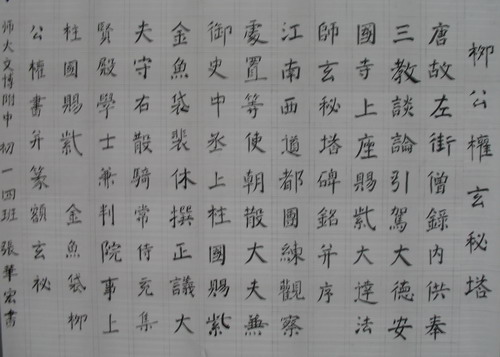 柳公權玄秘塔
唐故左街僧錄內供奉
三教談論引駕大德安
國寺上座賜紫大達法
師玄秘塔碑銘并序
江南西道都團練觀察
處置等使朝散大夫兼
御史中丞上柱國賜紫
金魚袋裴休撰正議大
夫守右散騎常侍充集
賢殿學士兼判院事上
柱國賜紫金魚袋柳
公權書并篆額玄秘
师大文博附中初一四班張華宏書